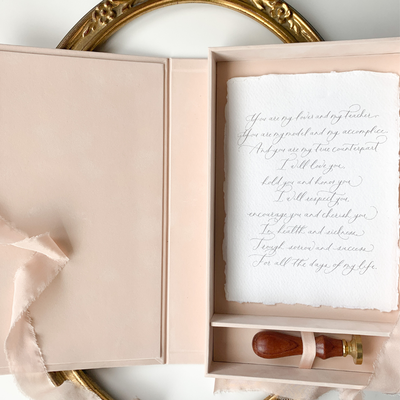 You are my lover and my teacher
You are my model and my accomplice
And you are my true counterpart
I will love you,
hold you and honor you
I will respect you,
encourage you and cherish you
In health and sickness
Through sorrow and success
For all the days of my life